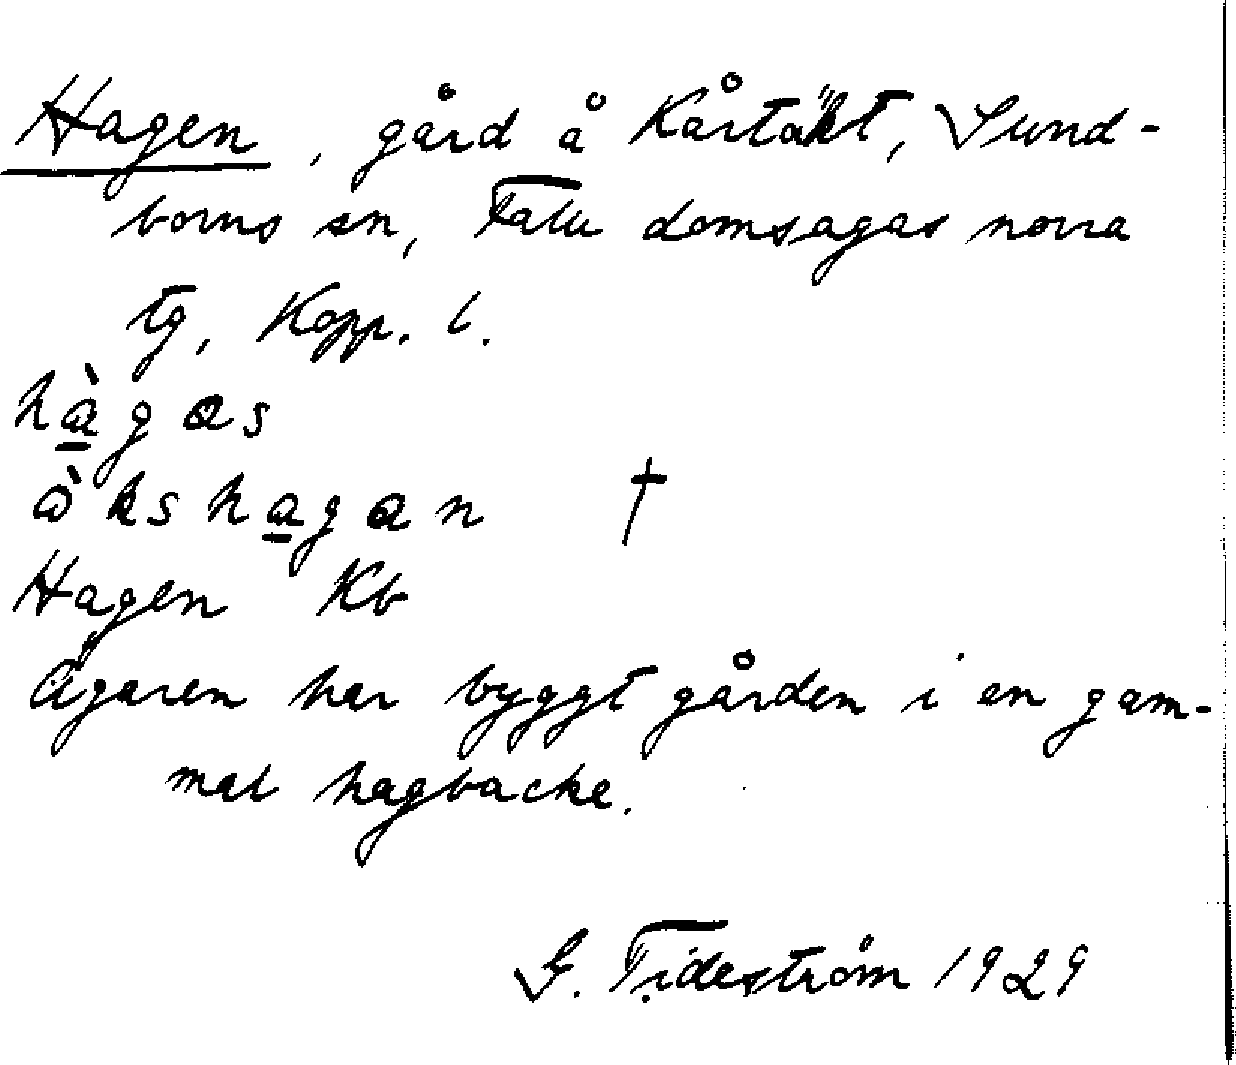 Hagen, gård å Kårtäkt, Sund-
borns sn, Falu domsagas norra
tg, Kopp. l.
hàgas
òkshagan †
Hagen Kb
Ägaren har byggt gården i en gam-
mal hagbacke.
G. Tideström 1929